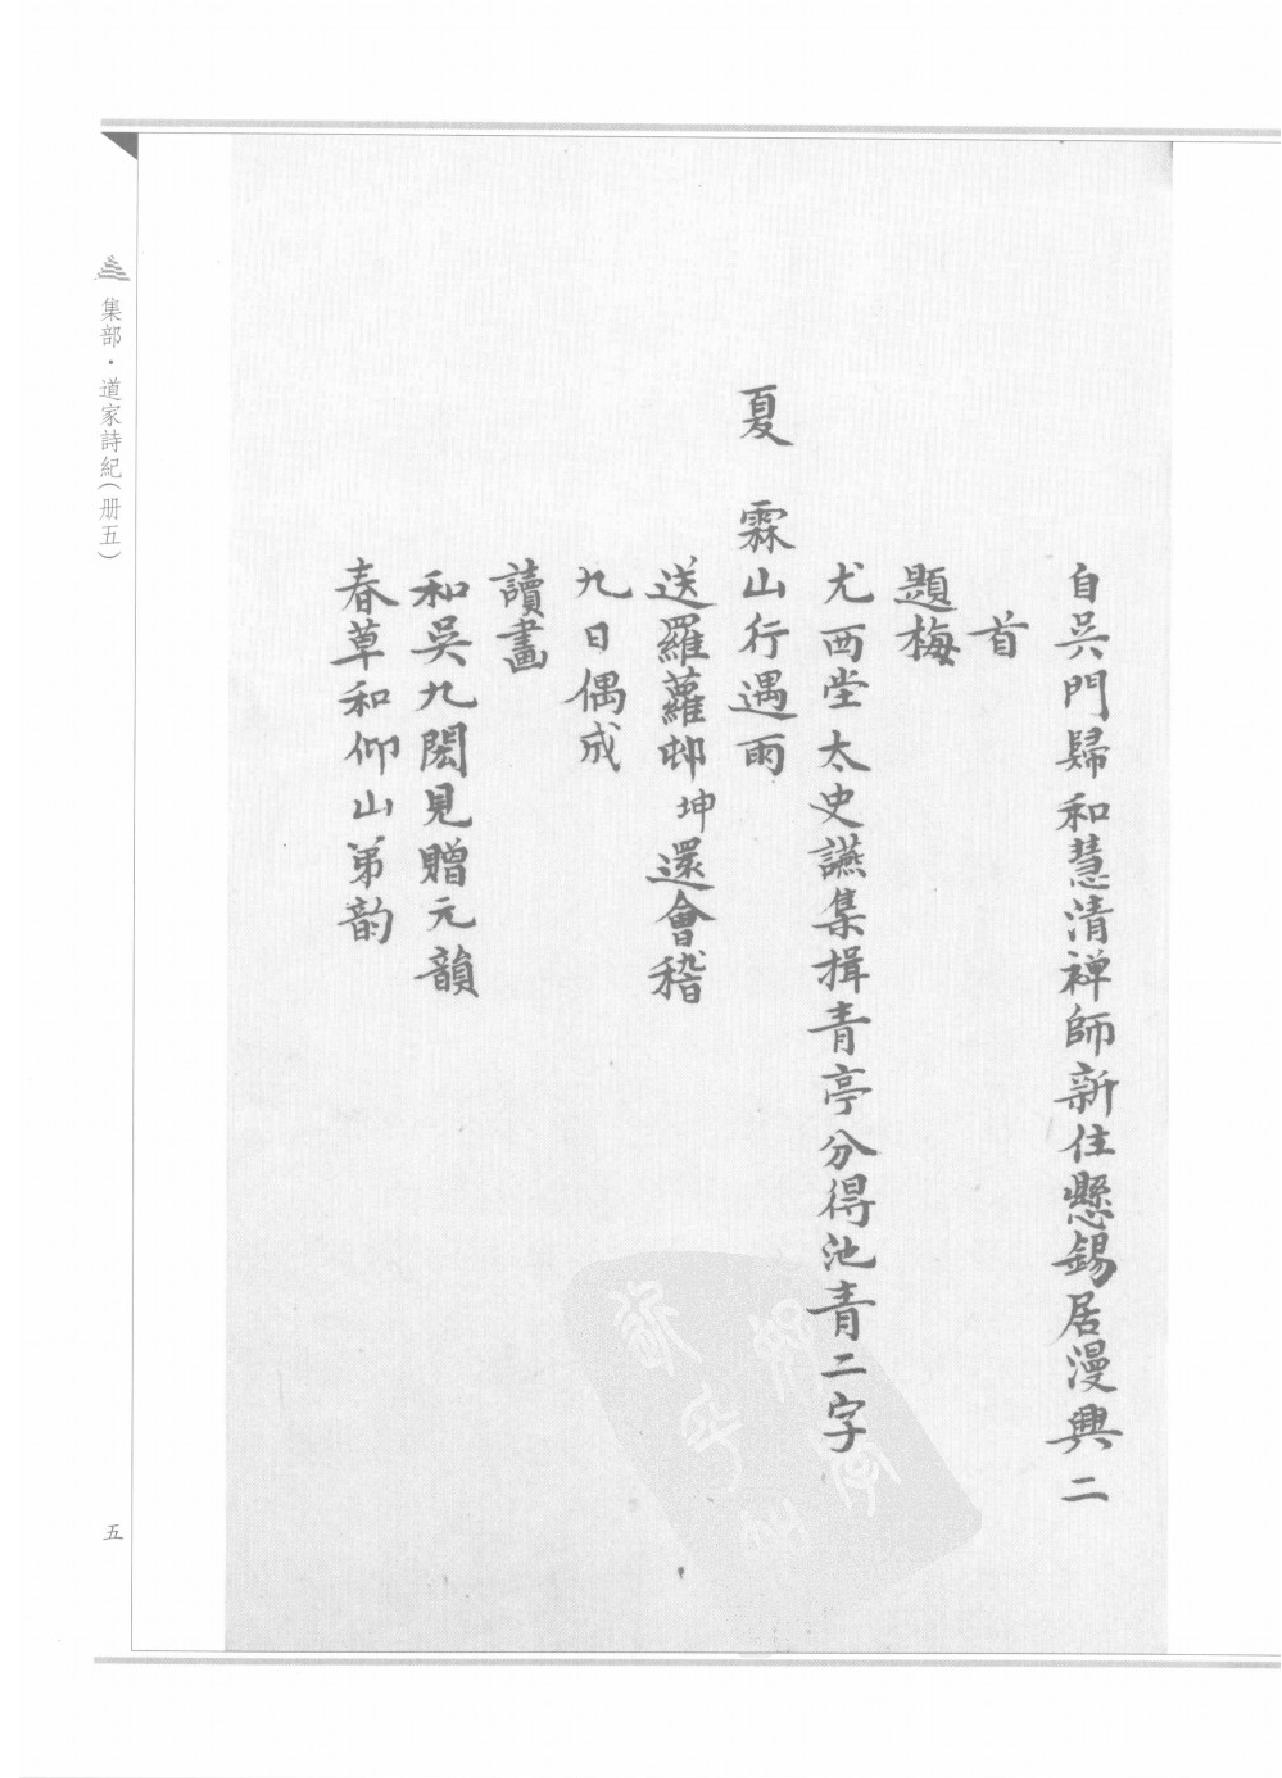 自吳門歸和慧清禅師新住懸錫居漫興二
首
題梅
尤西堂太史讌集揖青亭分得池青二字
夏　霖山行遇雨
送羅蘿邨坤還會稽
九日偶成
讀畫
和吳九閎見贈元韻
春草和仰山弟韵
集部·道家詩紀（册五）
五